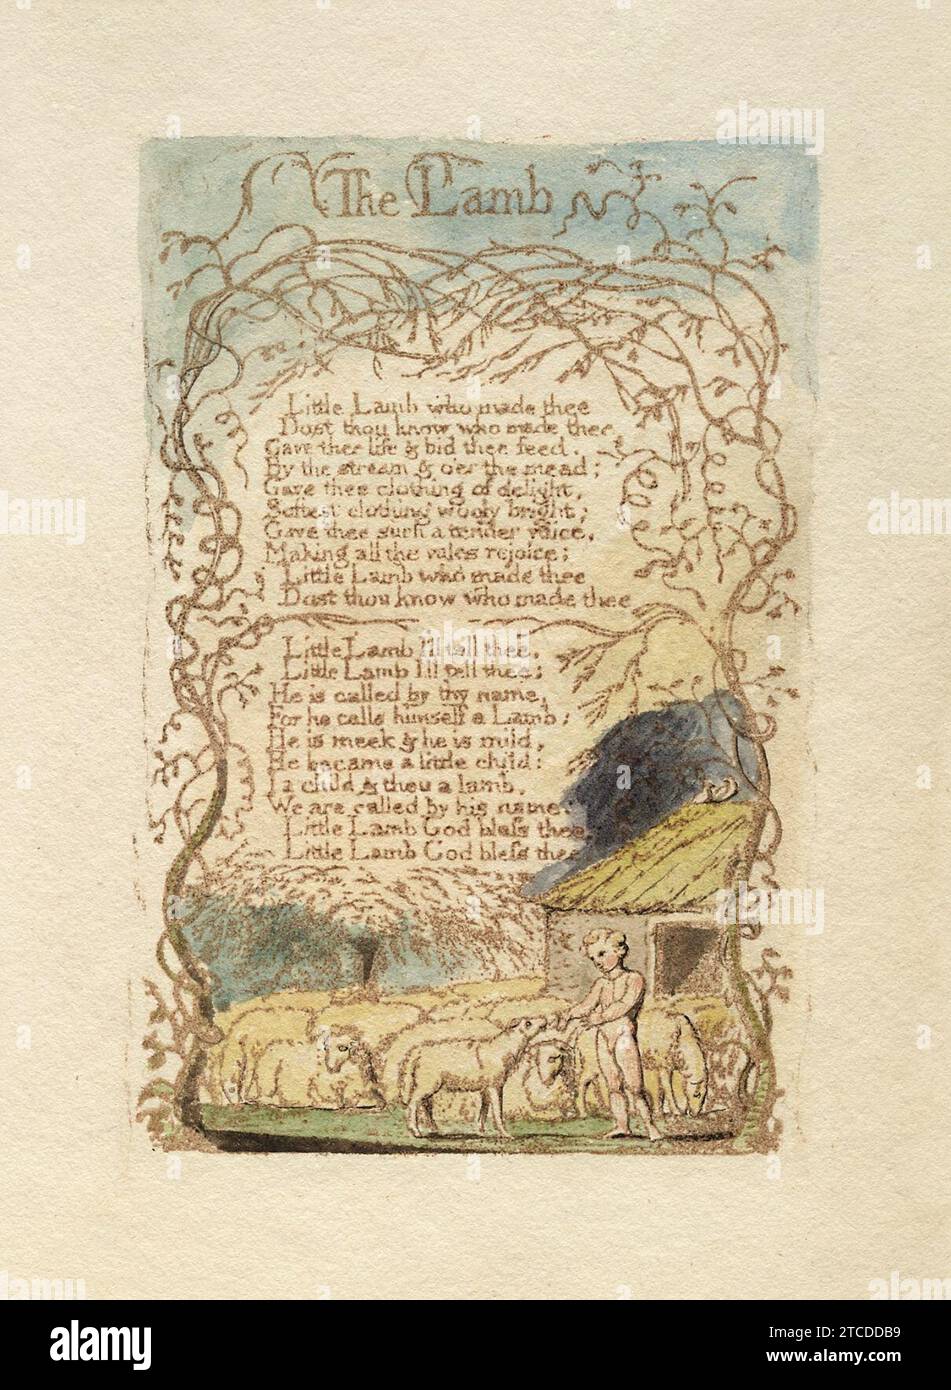 The Lamb
Little Lamb who made thee
Dost thou know who made thee
Gave thee life & bid thee feed.
By the stream & o'er the mead;
Gave thee clothing of delight,
Softest clothing wooly bright;
Gave thee such a tender voice,
Making all the vales rejoice:
Little Lamb who made thee
Dost thou know who made thee
Little Lamb I'll tell thee,
Little Lamb I'll tell thee;
He is called by thy name,
For he calls himself a Lamb:
He is meek & he is mild,
He became a little child:
I a child & thou a lamb,
We are called by his name.
Little Lamb God bless thee,
Little Lamb God bless thee.
alamy
Image ID: 2TCDDB9
www.alamy.com